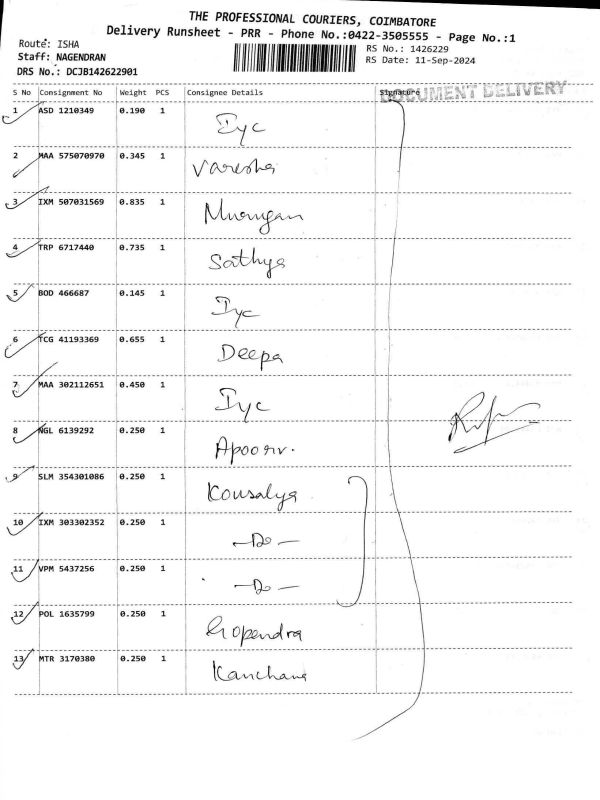 THE PROFESSIONAL COURIERS, COIMBATORE
Delivery Runsheet - PRR - Phone No.:0422-3505555 - Page No.:1
Route: ISHA
Staff: NAGENDRAN
DRS No.: DCJB142622901
RS No.: 1426229
RS Date: 11-Sep-2024
DOCUMENT DELIVERY
S No Consignment No Weight PCS Consignee Details Signature
1 ASD 1210349 0.190 1 Iyc
2 MAA 575070970 0.345 1 Varesha
3 IXM 507031569 0.835 1 Murugan
4 TRP 6717440 0.735 1 Sathya
5 BOD 466687 0.145 1 Iyc
6 TCG 41193369 0.655 1 Deepa
7 MAA 302112651 0.450 1 Iyc
8 NGL 6139292 0.250 1 Apoorv.
9 SLM 354301086 0.250 1 Kousalya
10 IXM 303302352 0.250 1 -Do-
11 VPM 5437256 0.250 1 -Do-
12 POL 1635799 0.250 1 Gopendra
13 MTR 3170380 0.250 1 Kanchana